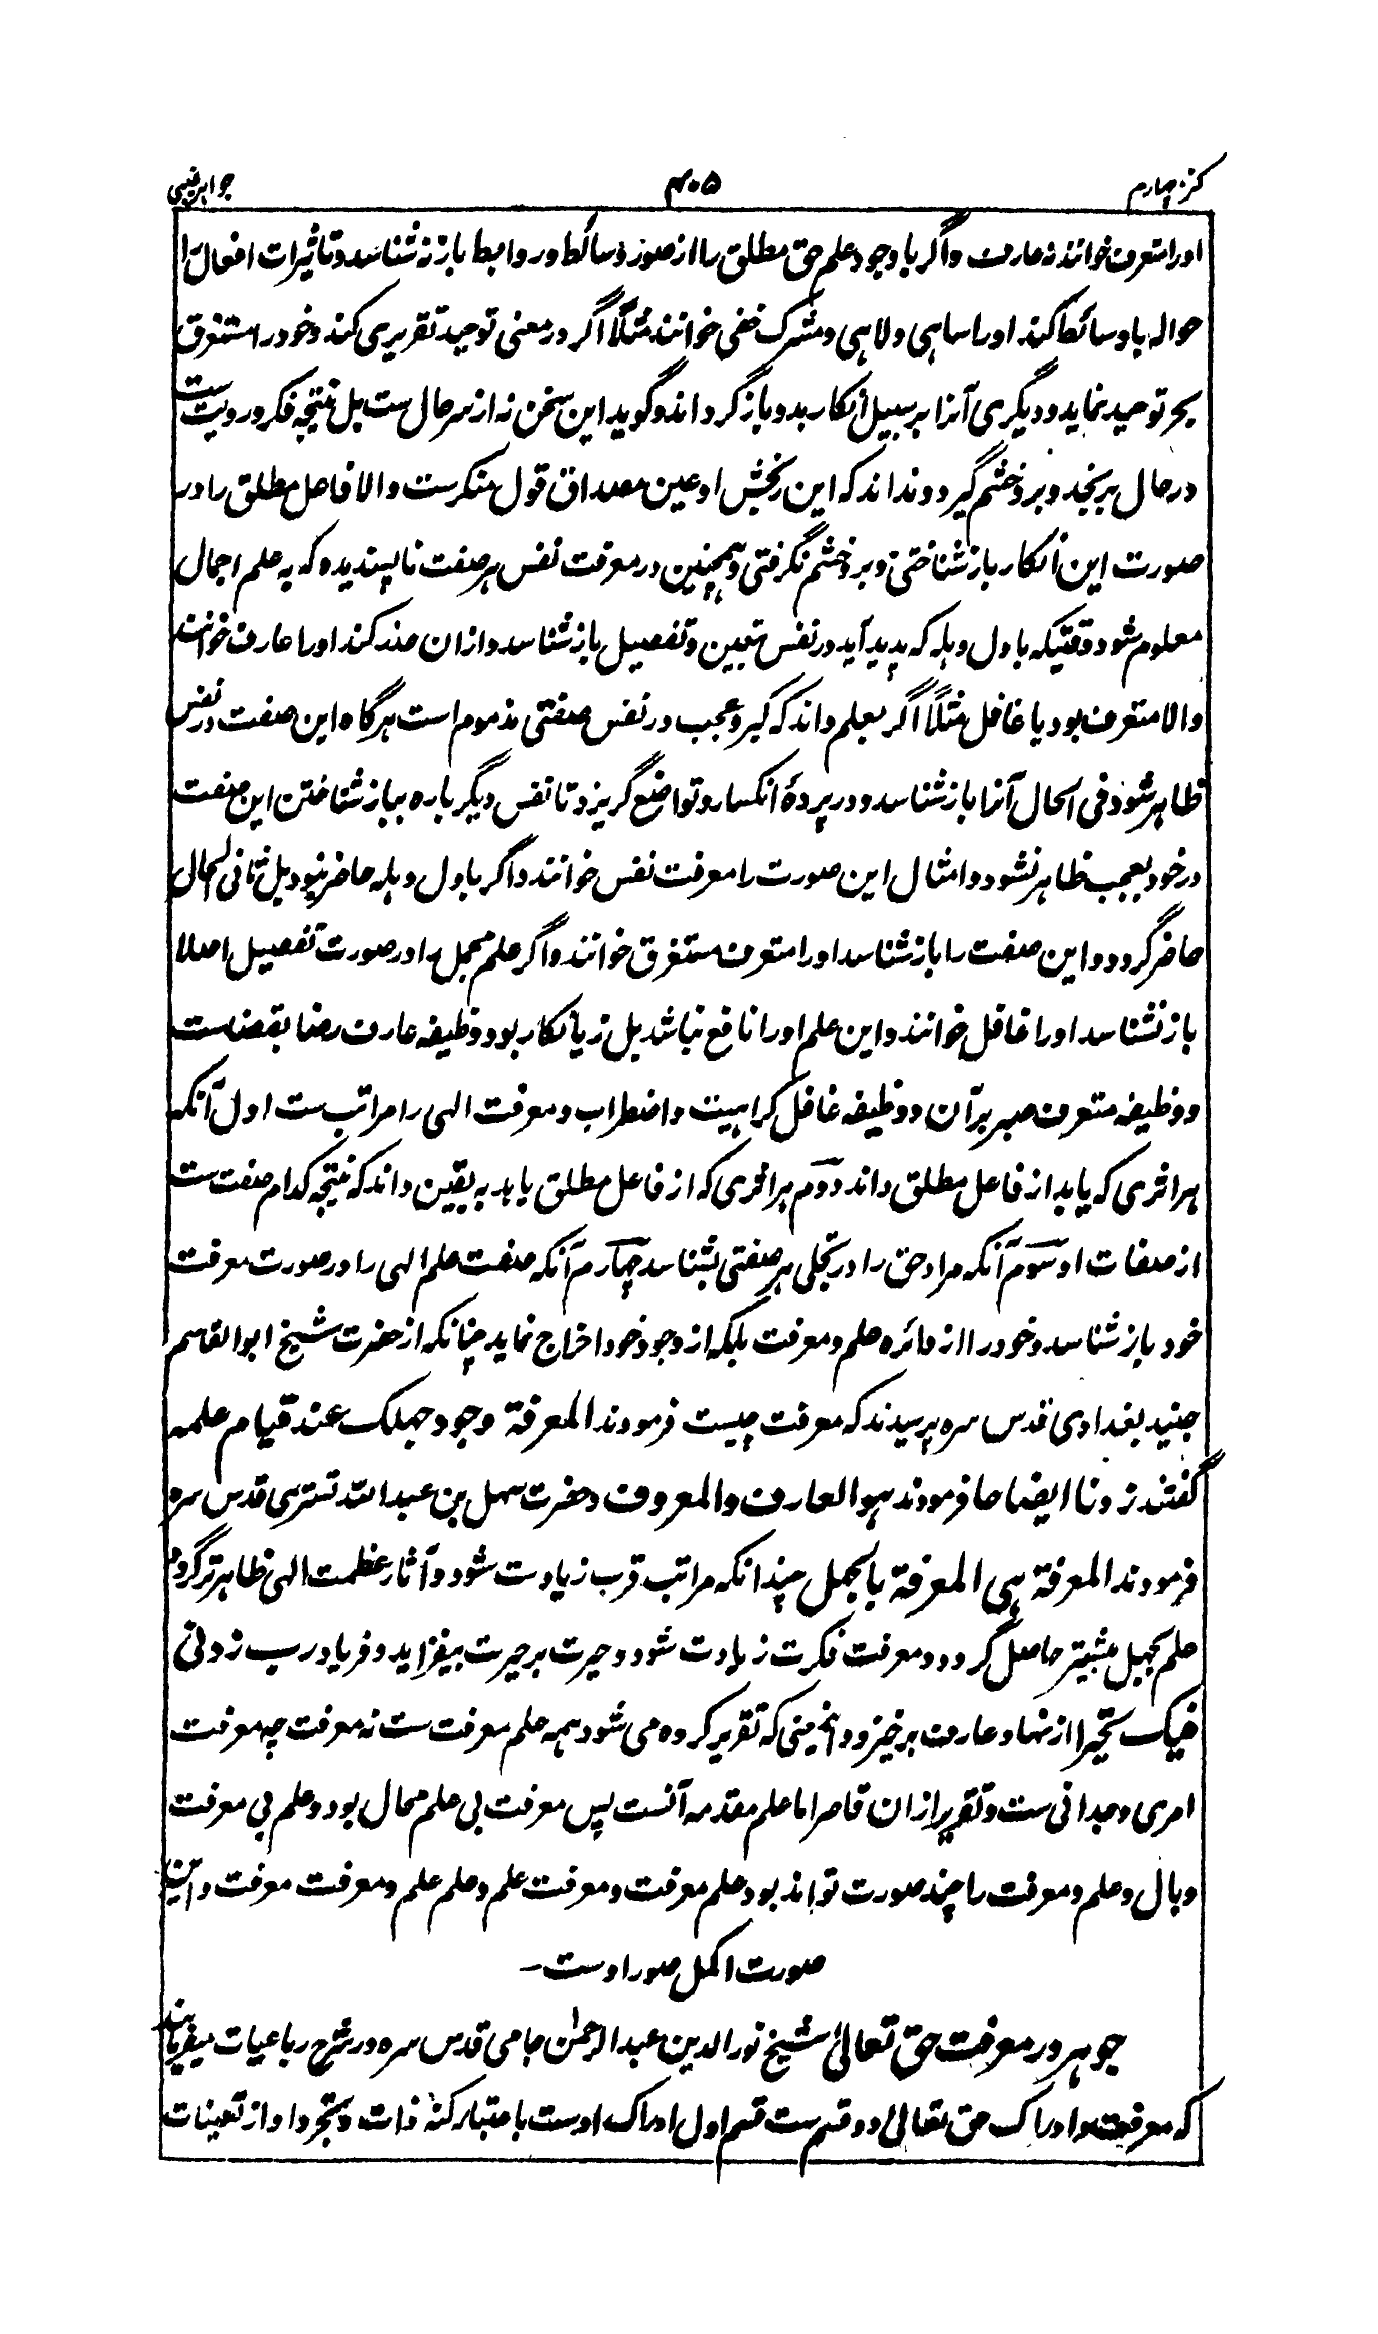 کنز چهارم ۴۰۵ جواهر غیبی
او را متعرف خوانند نه عارف و اگر با وجود علم حق مطلق را از صور وسائط و روابط باز نه شناسد و تاثیرات افعال را
حواله با وسائط کند او را ساهی و لاهی و مشرک خفی خوانند مثلاً اگر در معنی توحید تقریری کند و خود را مستغرق
بحر توحید نماید و دیگری آنرا بر سبیل انکار بدو باز گرداند و گوید این سخن نه از سر حال ست بل نتیجه فکر و رویت ست
در حال برنجد و برو خشم گیرد و نداند که این رنجش او عین مصداق قول منکرست والا فاعل مطلق را در
صورت این انکار باز شناختی و برو خشم نگرفتی و همچنین در معرفت نفس هر صفت ناپسندیده که به علم اجمال
معلوم شود وقتیکه باول وهله که پدید آید در نفس تعیین و تفصیل باز شناسد و ازان حذر کند او را عارف خوانند
والا متعرف بود یا غافل مثلاً اگر بعلم داند که کبر و عجب در نفس صفتی مذموم است هرگاه این صفت در نفس
ظاهر شود فی الحال آنرا باز شناسد و در پردهٔ انکسار و تواضع گریزد تا نفس دیگر باره بباز شناختن این صفت
در خود بعجب ظاهر نشود و امثال این صورت را معرفت نفس خوانند و اگر باول وهله حاضر نبود بل ثانی الحال
حاضر گردد و این صفت را باز شناسد او را متعرف مستغرق خوانند و اگر علم مجمل را در صورت تفصیل اصلا
باز نشناسد او را غافل خوانند و این علم او را نافع نباشد بل زیانکار بود و وظیفه عارف رضا بقضاست
و وظیفه متعرف صبر بر آن و وظیفه غافل کراهیت و اضطراب و معرفت الهی را مراتب ست اول آنکه
هر اثری که یابد از فاعل مطلق داند دوم هر اثری که از فاعل مطلق یابد به یقین داند که نتیجه کدام صفت ست
از صفات او سوم آنکه مراد حق را در تجلی هر صفتی بشناسد چهارم آنکه صفت علم الهی را در صورت معرفت
خود باز شناسد و خود را از دائره علم و معرفت بلکه از وجود خود اخراج نماید چنانکه از حضرت شیخ ابو القاسم
جنید بغدادی قدس سره پرسیدند که معرفت چیست فرمودند المعرفة وجود جهلک عند قیام علمه
گفتند زدنا ایضاحا فرمودند هو العارف والمعروف و حضرت سهل بن عبد الله تستری قدس سره
فرمودند المعرفة هی المعرفة بالجهل چندانکه مراتب قرب زیادت شود و آثار عظمت الهی ظاهرتر گردد
علم بجهل بیشتر حاصل گردد و معرفت نکرت زیادت شود و حیرت بر حیرت بیفزاید و فریاد رب زدنی
فیک تحیرا از نهاد عارف برخیزد و اینمعنی که تقریر کرده می شود همه علم معرفت ست نه معرفت چه معرفت
امری وجدانی ست و تقریر ازان قاصر اما علم مقدمه آنست پس معرفت بی علم محال بود و علم بی معرفت
وبال و علم و معرفت را چند صورت تواند بود علم معرفت و معرفت علم و علم علم و معرفت معرفت و این
صورت اکمل صور اوست –
جوهر در معرفت حق تعالیٰ شیخ نور الدین عبد الرحمٰن جامی قدس سره در شرح رباعیات میفرمایند
که معرفت و ادراک حق تعالیٰ دو قسم ست قسم اول ادراک اوست باعتبار کنه ذات و تجرد او از تعینات